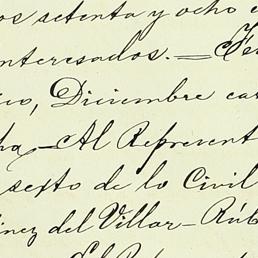 os setenta y ocho
interesados. — Fe
co, Diciembre ca
ha — Al Represent
sexto de lo Civil
inez del Villar — Rúb